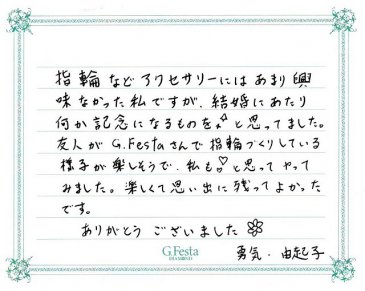 指輪などアクセサリーにはあまり興
味なかった私ですが、結婚にあたり
何か記念になるものを♪と思ってました。
友人がG.Festaさんで指輪づくりしている
様子が楽しそうで、私も♡と思ってやって
みました。楽しくて思い出に残ってよかった
です。
ありがとうございました
G.Festa
DIAMOND
勇気・由起子